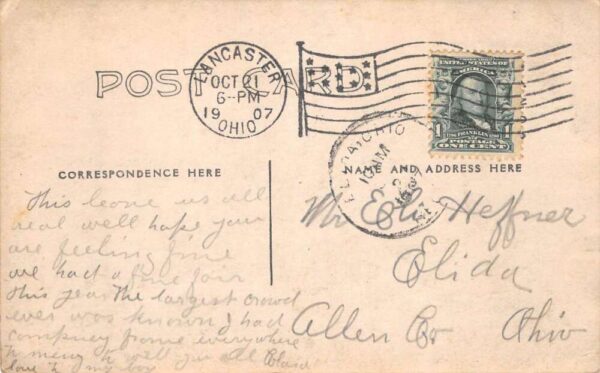 POST CARD
LANCASTER
OCT 21
6-PM
1907
OHIO
UNITED STATES OF
AMERICA
1 FRANKLIN 1
POSTAGE
ONE CENT
ELIDA, OHIO
10 AM
CORRESPONDENCE HERE
NAME AND ADDRESS HERE
This leave us all
real well hope you
are feeling fine
we had a fine fair
this year the largest crowd
ever was known I had
company from everywhere
to meny to tell you all
love to my boy
Mr Heffner
Elida
Allen Co Ohio